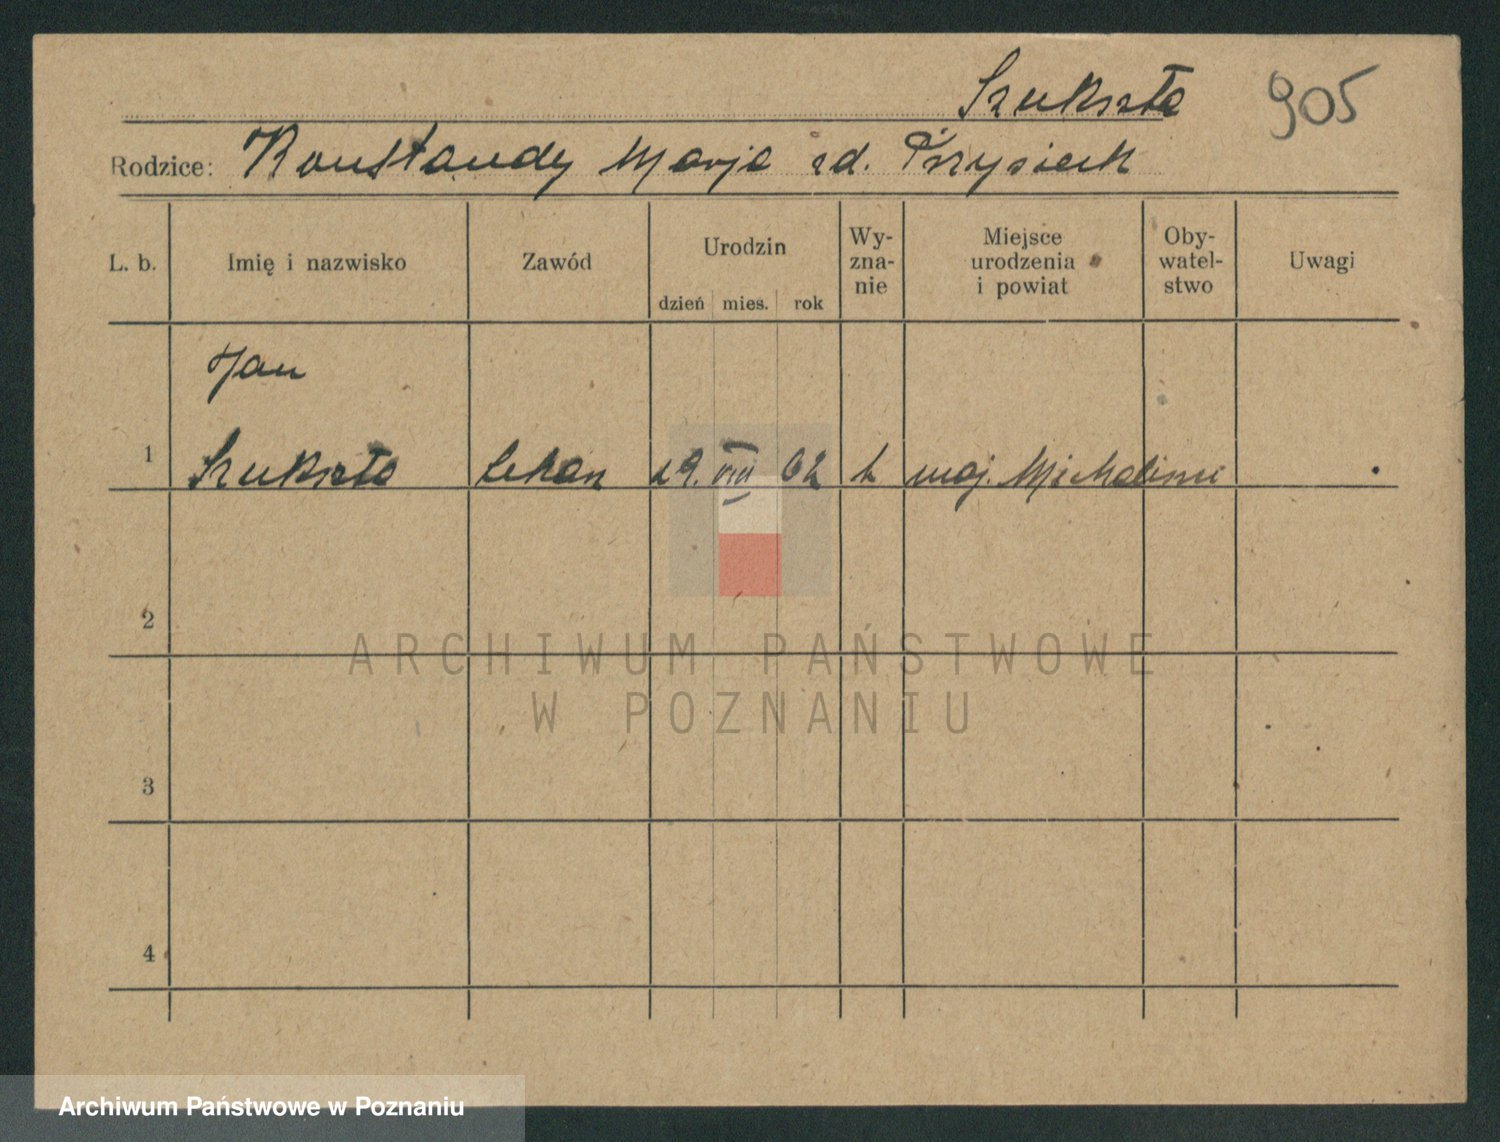 Szukszta 905
Rodzice: Konstandy Marja zd. Przysieck
L. b. Imię i nazwisko Zawód Urodzin dzień mies. rok Wy-zna-nie Miejsce urodzenia i powiat Oby-watel-stwo Uwagi
Jan
1 Szukszta lekarz 29. VIII 62 maj. Michalinie
2
3
4
ARCHIWUM PAŃSTWOWE
W POZNANIU
Archiwum Państwowe w Poznaniu